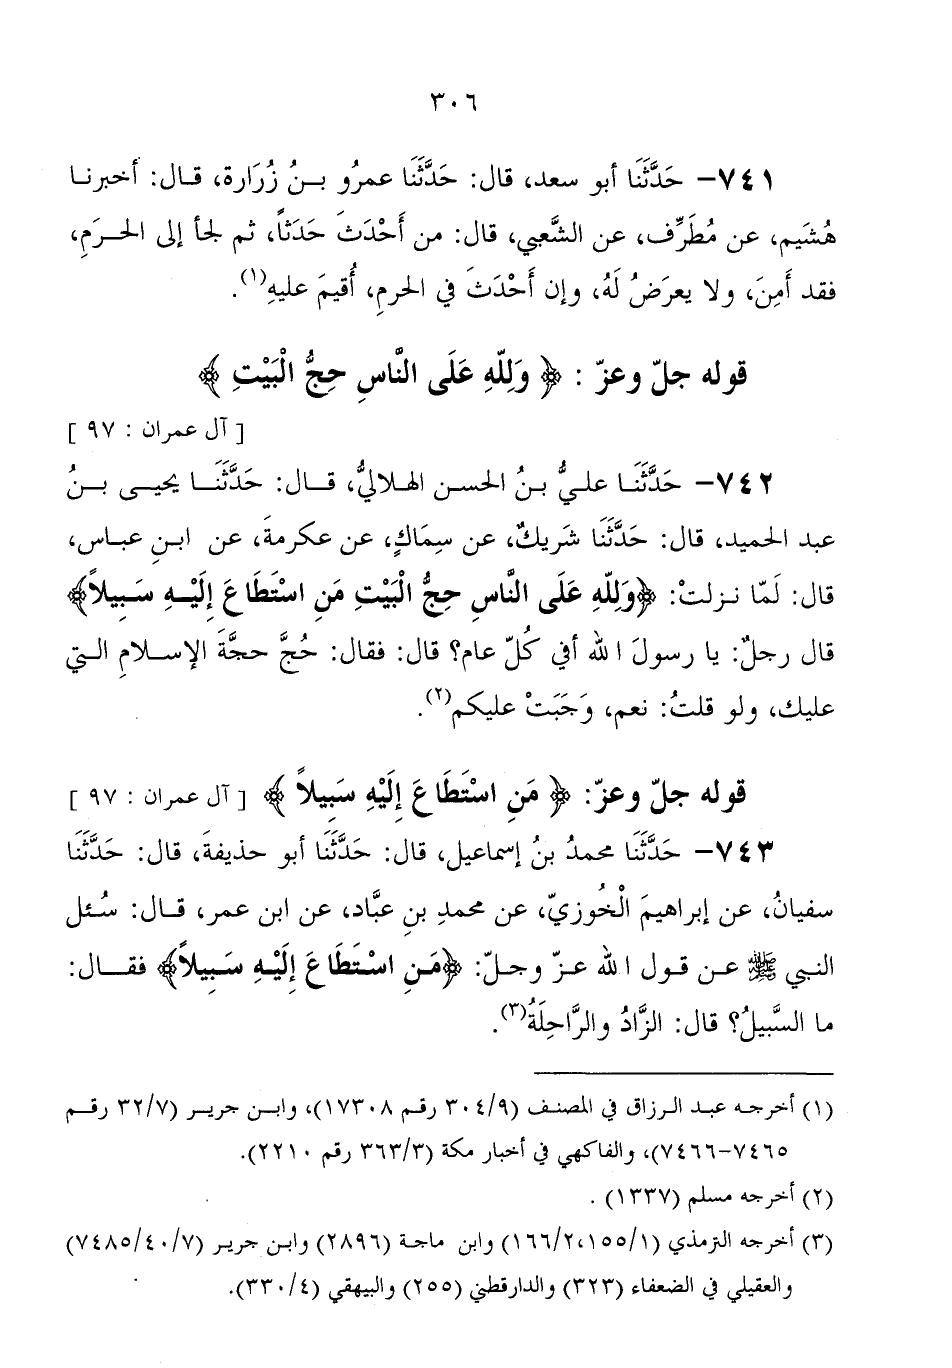 ٣٠٦
٧٤١– حَدَّثَنَا أبو سعد، قال: حَدَّثَنَا عمرُو بـنُ زُرَارة، قـال: أخبرنـا
هُشَيم، عن مُطَرِّف، عن الشَّعبي، قال: من أَحْدَثَ حَدَثاً، ثم لجأ إلى الحـرَمِ،
فقد أَمِنَ، ولا يعرَضُ لَهُ، وإن أَحْدَثَ في الحرمِ، أُقيمَ عليهِ(١).
قوله جلّ وعزّ : ﴿ وَلِلّهِ عَلَى النَّاسِ حِجُّ الْبَيْتِ ﴾
[ آل عمران : ٩٧ ]
٧٤٢– حَدَّثَنَـا علـيُّ بـنُ الحسـن الهـلاليُّ، قـال: حَدَّثَنَـا يحيـى بـنُ
عبد الحميد، قال: حَدَّثَنَا شَريكٌ، عن سِمَاكٍ، عن عكرمةَ، عن ابـنِ عبـاس،
قال: لَمّا نـزلتْ: ﴿وَلِلّهِ عَلَى النَّاسِ حِجُّ الْبَيْتِ مَنِ اسْتَطَاعَ إِلَيْـهِ سَـبِيلاً﴾
قال رجلٌ: يا رسولَ الله أفي كُلّ عام؟ قال: فقال: حُجَّ حجَّةَ الإسـلامِ الـتي
عليك، ولو قلتُ: نعم، وَجَبَتْ عليكم(٢).
قوله جلّ وعزّ: ﴿ مَنِ اسْتَطَاعَ إِلَيْهِ سَبِيلاً ﴾ [ آل عمران : ٩٧ ]
٧٤٣– حَدَّثَنَا محمدُ بنُ إسماعيل، قال: حَدَّثَنَا أبو حذيفةَ، قال: حَدَّثَنَا
سفيانُ، عن إبراهيمَ الْخُوزيّ، عن محمدِ بنِ عبَّاد، عن ابن عمر، قـال: سُـئل
النـبي ﷺ عـن قـول الله عـزّ وجـلّ: ﴿مَـنِ اسْـتَطَاعَ إِلَيْـهِ سَـبِيلاً﴾ فقـــال:
ما السَّبيلُ؟ قال: الزَّادُ والرَّاحِلَةُ(٣).
(١) أخرجـه عبـد الـرزاق في المصنـف (٣٠٤/٩ رقـم ١٧٣٠٨)، وابـن جريـر (٣٢/٧ رقـم
٧٤٦٥–٧٤٦٦)، والفاكهي في أخبار مكة (٣٦٣/٣ رقم ٢٢١٠).
(٢) أخرجه مسلم (١٣٣٧) .
(٣) أخرجه الترمذي (١٥٥/١، ١٦٦/٢) وابن ماجـة (٢٨٩٦) وابـن جريـر (٧٤٨٥/٤٠/٧)
والعقيلي في الضعفاء (٣٢٣) والدارقطني (٢٥٥) والبيهقي (٣٣٠/٤).